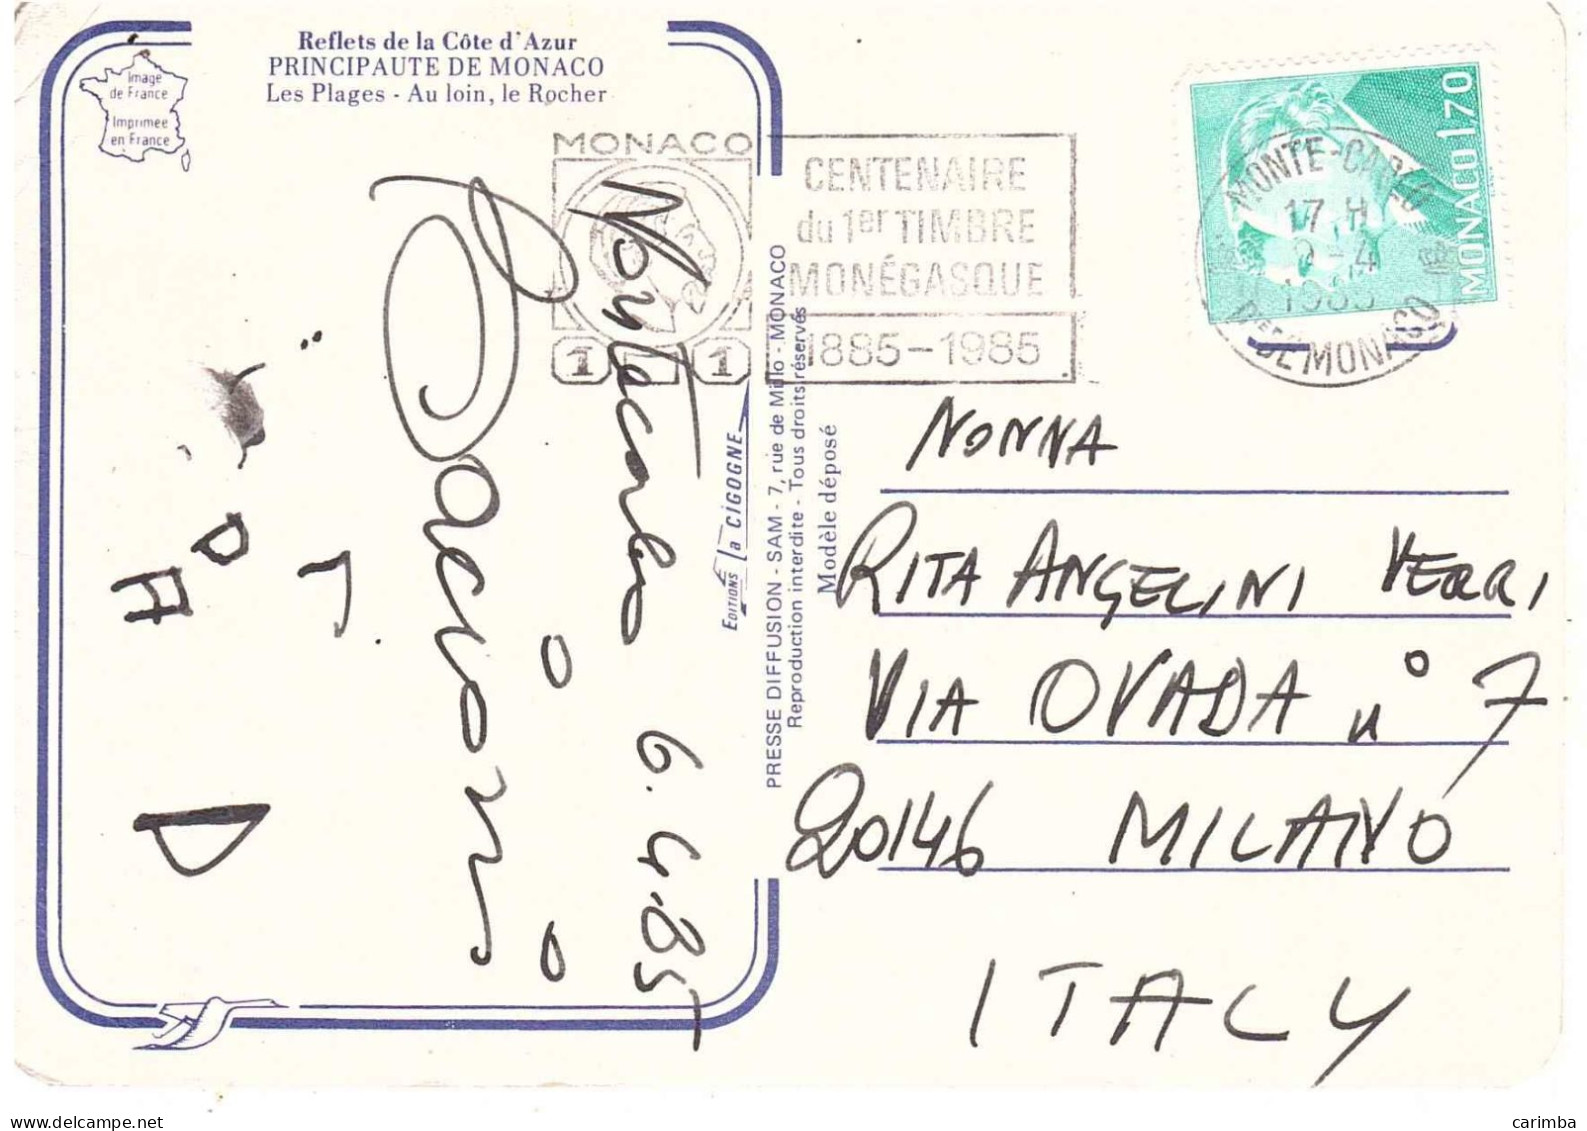 Reflets de la Côte d'Azur
PRINCIPAUTE DE MONACO
Les Plages - Au loin, le Rocher
Image
de France
Imprimée
en France
MONACO
1 1
CENTENAIRE
du 1er TIMBRE
MONÉGASQUE
1885-1985
MONACO 1,70
MONTE-CARLO
17 H
-4
Pté DE MONACO
Montecarlo 6.4.85
Bacioni
EDITIONS la CIGOGNE
PRESSE DIFFUSION - SAM - 7, rue de Millo - MONACO
Reproduction interdite - Tous droits réservés
Modèle déposé
NONNA
RITA ANGELINI VERRI
VIA OVADA n° 7
20146 MILANO
ITALY
carimba
www.delcampe.net